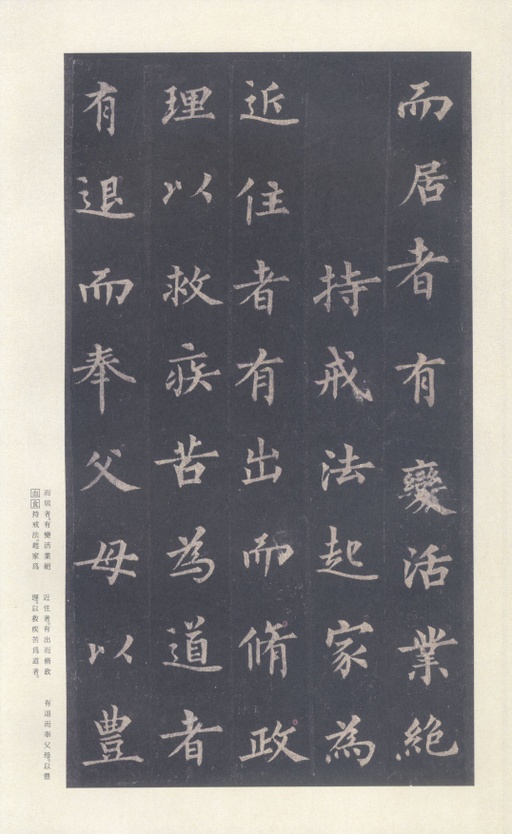 而居者有孌活業絕
持戒法起家為
近住者有出而脩政
理以救疾苦為道者
有退而奉父母以豊
而居者、有孌活業絕
血食持戒法、起家為
近住者、有出而脩政
理、以救疾苦爲道者、
有退而奉父母、以豊